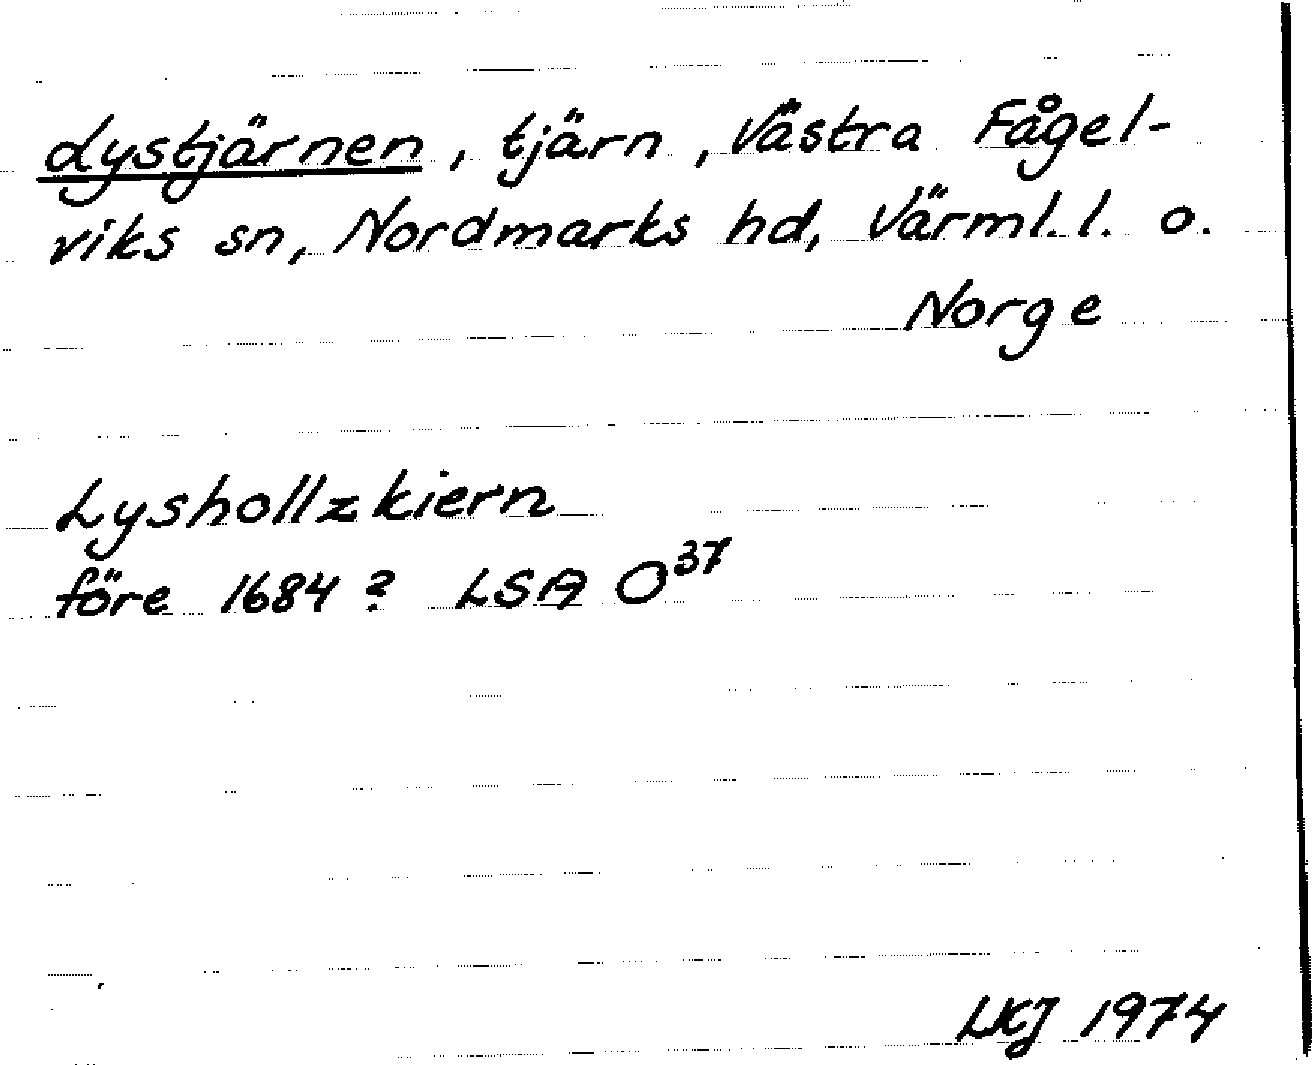 Lystjärnen, tjärn, Västra Fågel-
viks sn, Nordmarks hd, Värml. l. o.
Norge
Lyshollzkiern
före 1684? LSA O37
LKJ 1974